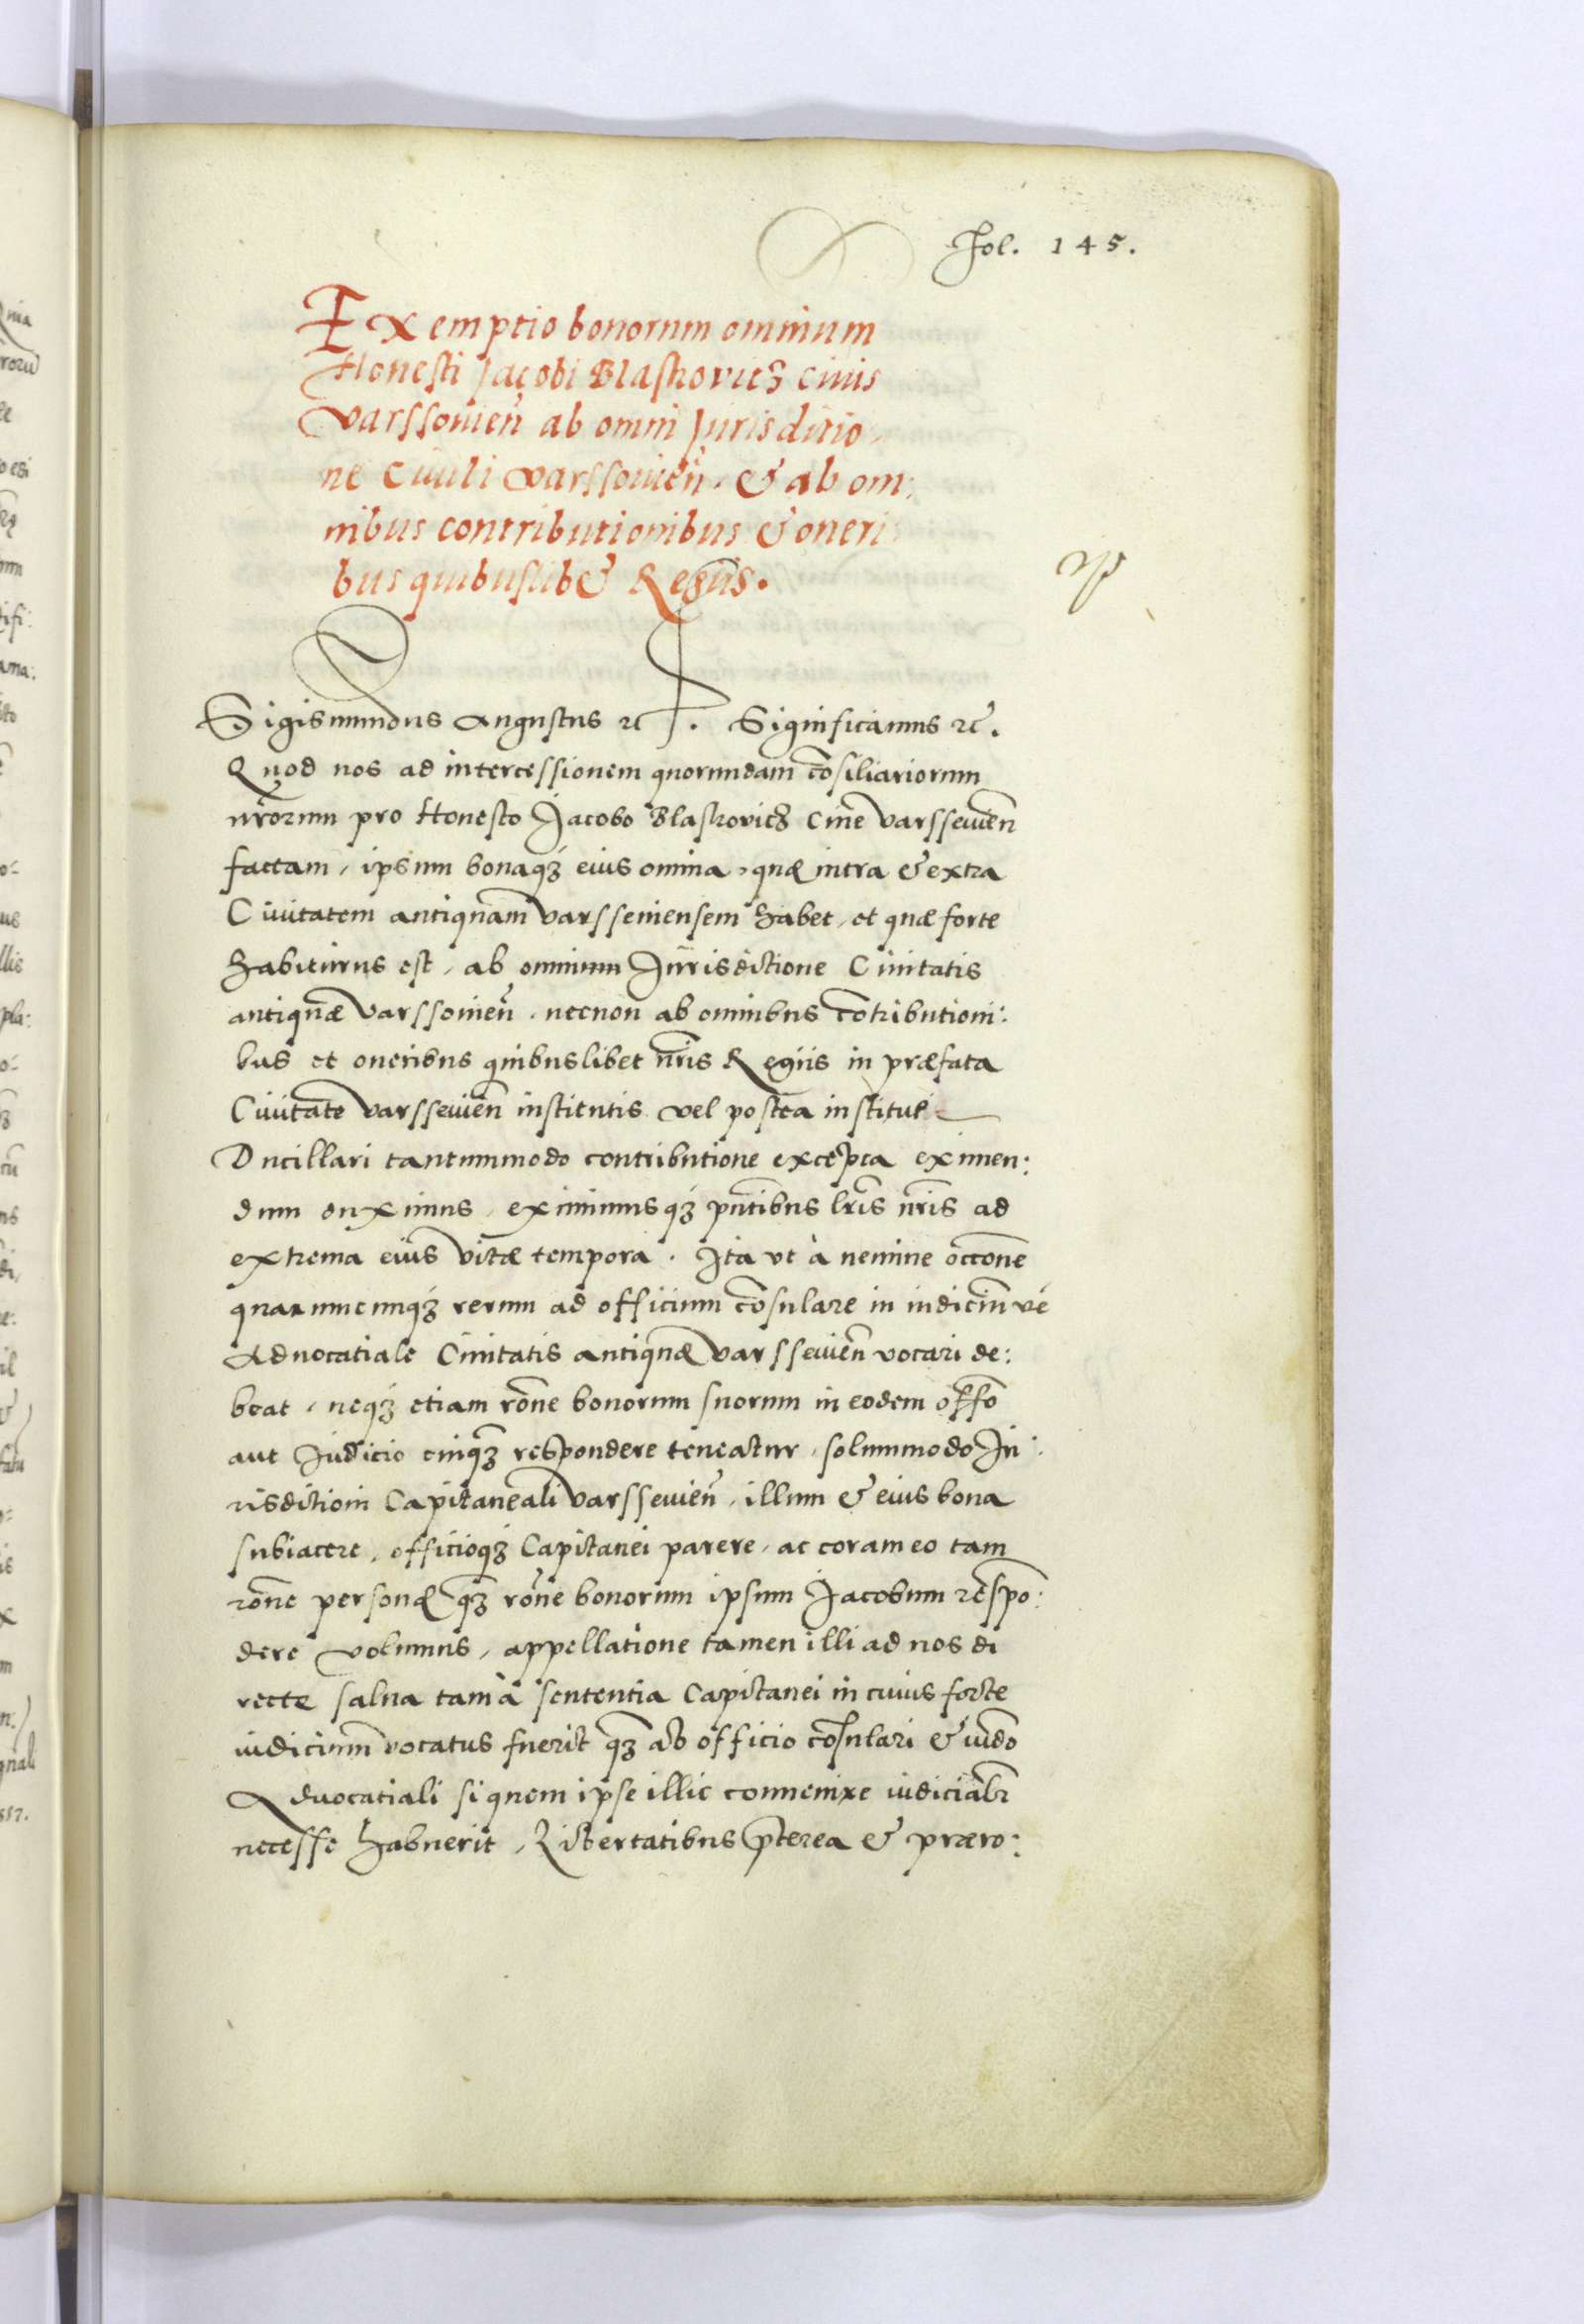 Fol. 145.
Exemptio bonorum omnium
Honesti Jacobi Blaskovicz civis
Varssovien̄ ab omni Jurisditio
ne Civili Varssovien̄. & ab om:
nibus contributionibus & oneri
bus quibuslib& Regiis.
Sigismundus Augustus ꝛc. Significamus ꝛc.
Quod nos ad intercessionem quorundam cōsiliariorum
nr̄orum pro Honesto Jacobo Blaskovicz Cive Varsseuien̄
factam, ipsum bonaqꝫ eius omnia, quæ intra & extra
Ciuitatem antiquam Varsseuiensem habet, et quæ forte
habiturus est, ab omnium Jurisdictione Ciuitatis
antiquæ Varssouien̄. necnon ab omnibus cōtributioni:
bus et oneribus quibuslibet nr̄is Regiis in præfata
Ciuitate Varsseuien̄ institutis vel postea instituē
Ducillari tantummodo contributione excepta eximen:
dum duximus, eximimusqꝫ pn̄tibus lr̄is nr̄is ad
extrema eius vitæ tempora. Ita vt à nemine occōne
quarumcunqꝫ rerum ad officium cōsulare in iudicium vé
Aduocatiale Ciuitatis antiquæ Varsseuien̄ vocari de:
beat, neqꝫ etiam rōne bonorum suorum in eodem offō
aut Judicio cuiqꝫ respondere teneatur, solummodo Ju:
risdictioni Capitaneali Varsseuien̄, illum & eius bona
subiacere, officioqꝫ Capitanei parere, ac coram eo tam
rōne personæ qꝫ rōne bonorum ipsum Jacobum respō:
dere volumus, appellatione tamen illi ad nos di
recte salua tam à sententia Capitanei in cuius forte
iudicium vocatus fuerit qꝫ ab officio cōsulari & iudō
Aduocatiali si quem ipse illic conuenire iudicialr̄
necesse habuerit, Libertatibus p̄terea & præro: